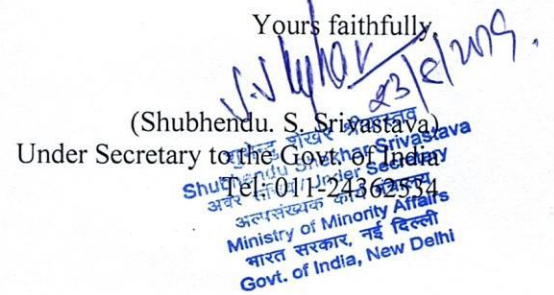 Yours faithfully,
23/8/2019.
(Shubhendu. S. Srivastava)
Under Secretary to the Govt. of India
Tel: 011-24362534
शुभेन्दु शेखर श्रीवास्तव
Shubhendu Shekhar Srivastava
अवर सचिव / Under Secretary
अल्पसंख्यक कार्य मंत्रालय
Ministry of Minority Affairs
भारत सरकार, नई दिल्ली
Govt. of India, New Delhi